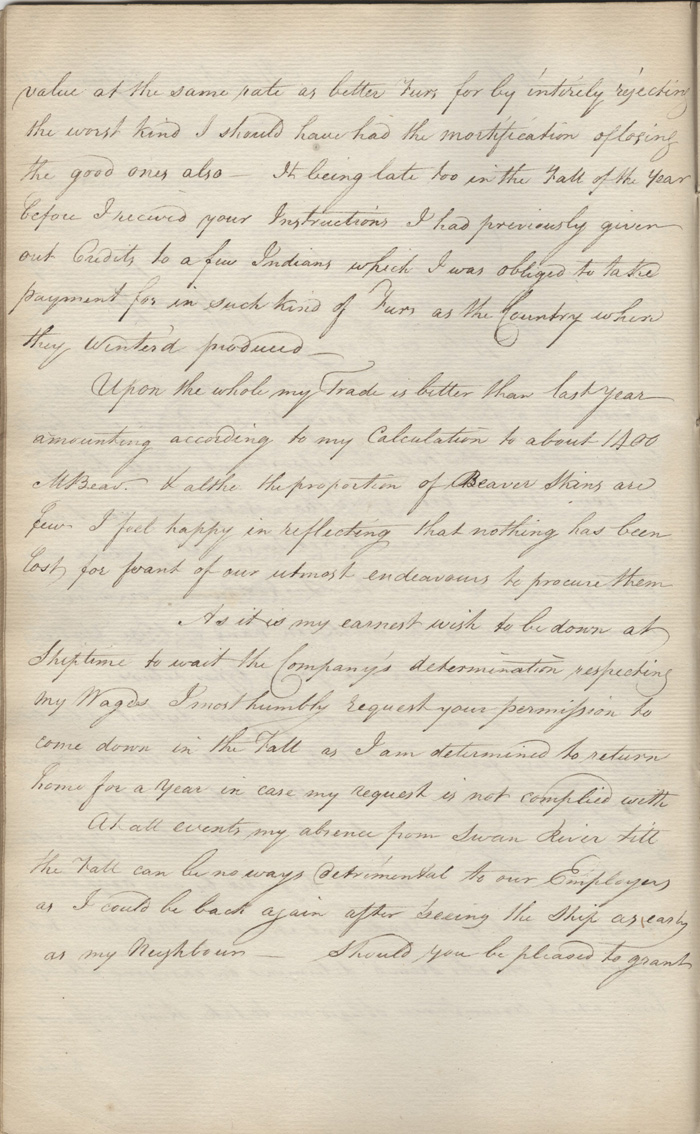 value at the same rate as better Furs for by intirely rejecting
the worst kind I should have had the mortification of losing
the good ones also — It being late too in the Fall of the Year
before I receivd your Instructions I had previously given
out Credits to a few Indians which I was obliged to take
payment for in such kind of Furs as the Country where
they winterd produced —
Upon the whole my Trade is better than last year
amounting according to my Calculation to about 1400
MBeavr & altho the proportion of Beaver Skins are
few I feel happy in reflecting that nothing has been
lost for want of our utmost endeavours to procure them
As it is my earnest wish to be down at
Shiptime to wait the Company's determination respecting
my Wages I most humbly request your permission to
come down in the Fall as I am determined to return
home for a Year in case my request is not complied with
At all events my absence from Swan River till
the Fall can be no ways detrimental to our Employers
as I could be back again after seeing the Ship as early
as my Neighbours — Should you be pleased to grant